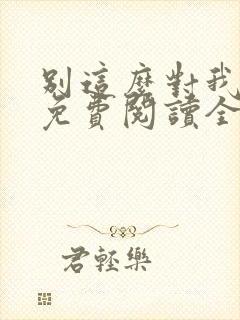 別這麼對我
免費閱讀全
君輕樂